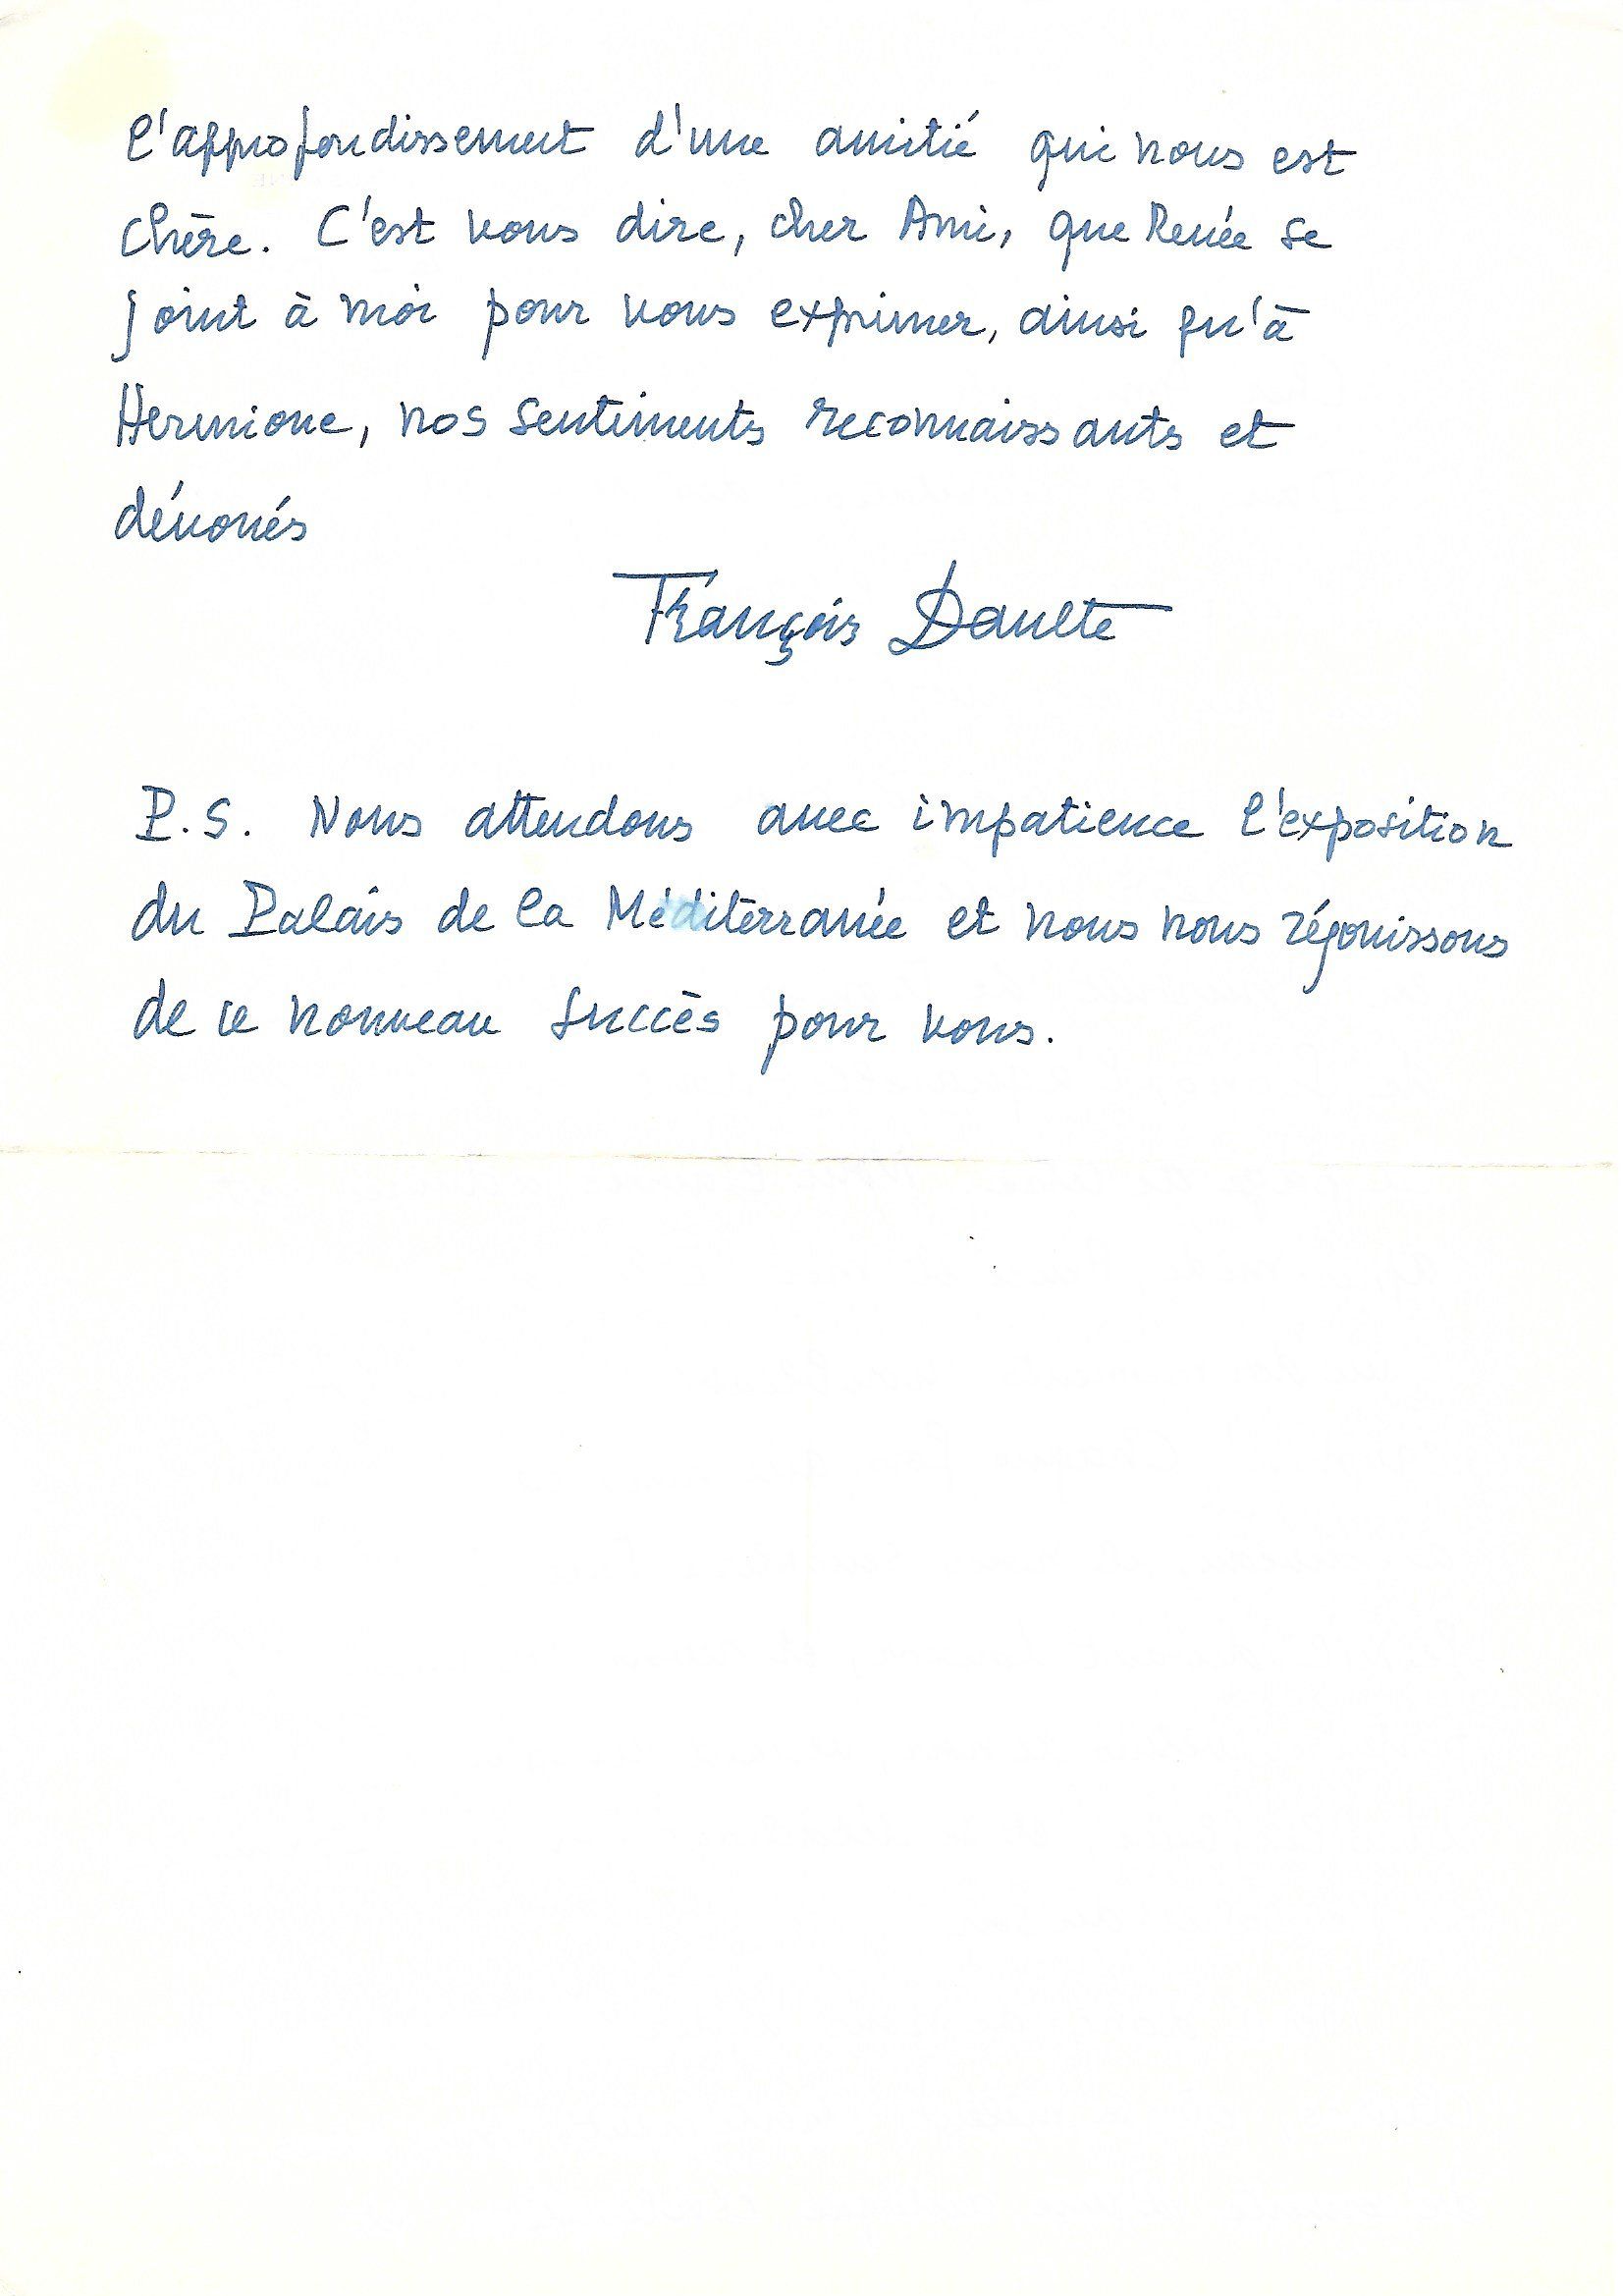 l'approfondissement d'une amitié qui nous est
chère. C'est vous dire, cher Ami, que Renée se
joint à moi pour vous exprimer, ainsi qu'à
Hermione, nos sentiments reconnaissants et
dévoués
François Daulte
P.S. Nous attendons avec impatience l'exposition
du Palais de la Méditerranée et nous nous réjouissons
de ce nouveau succès pour vous.